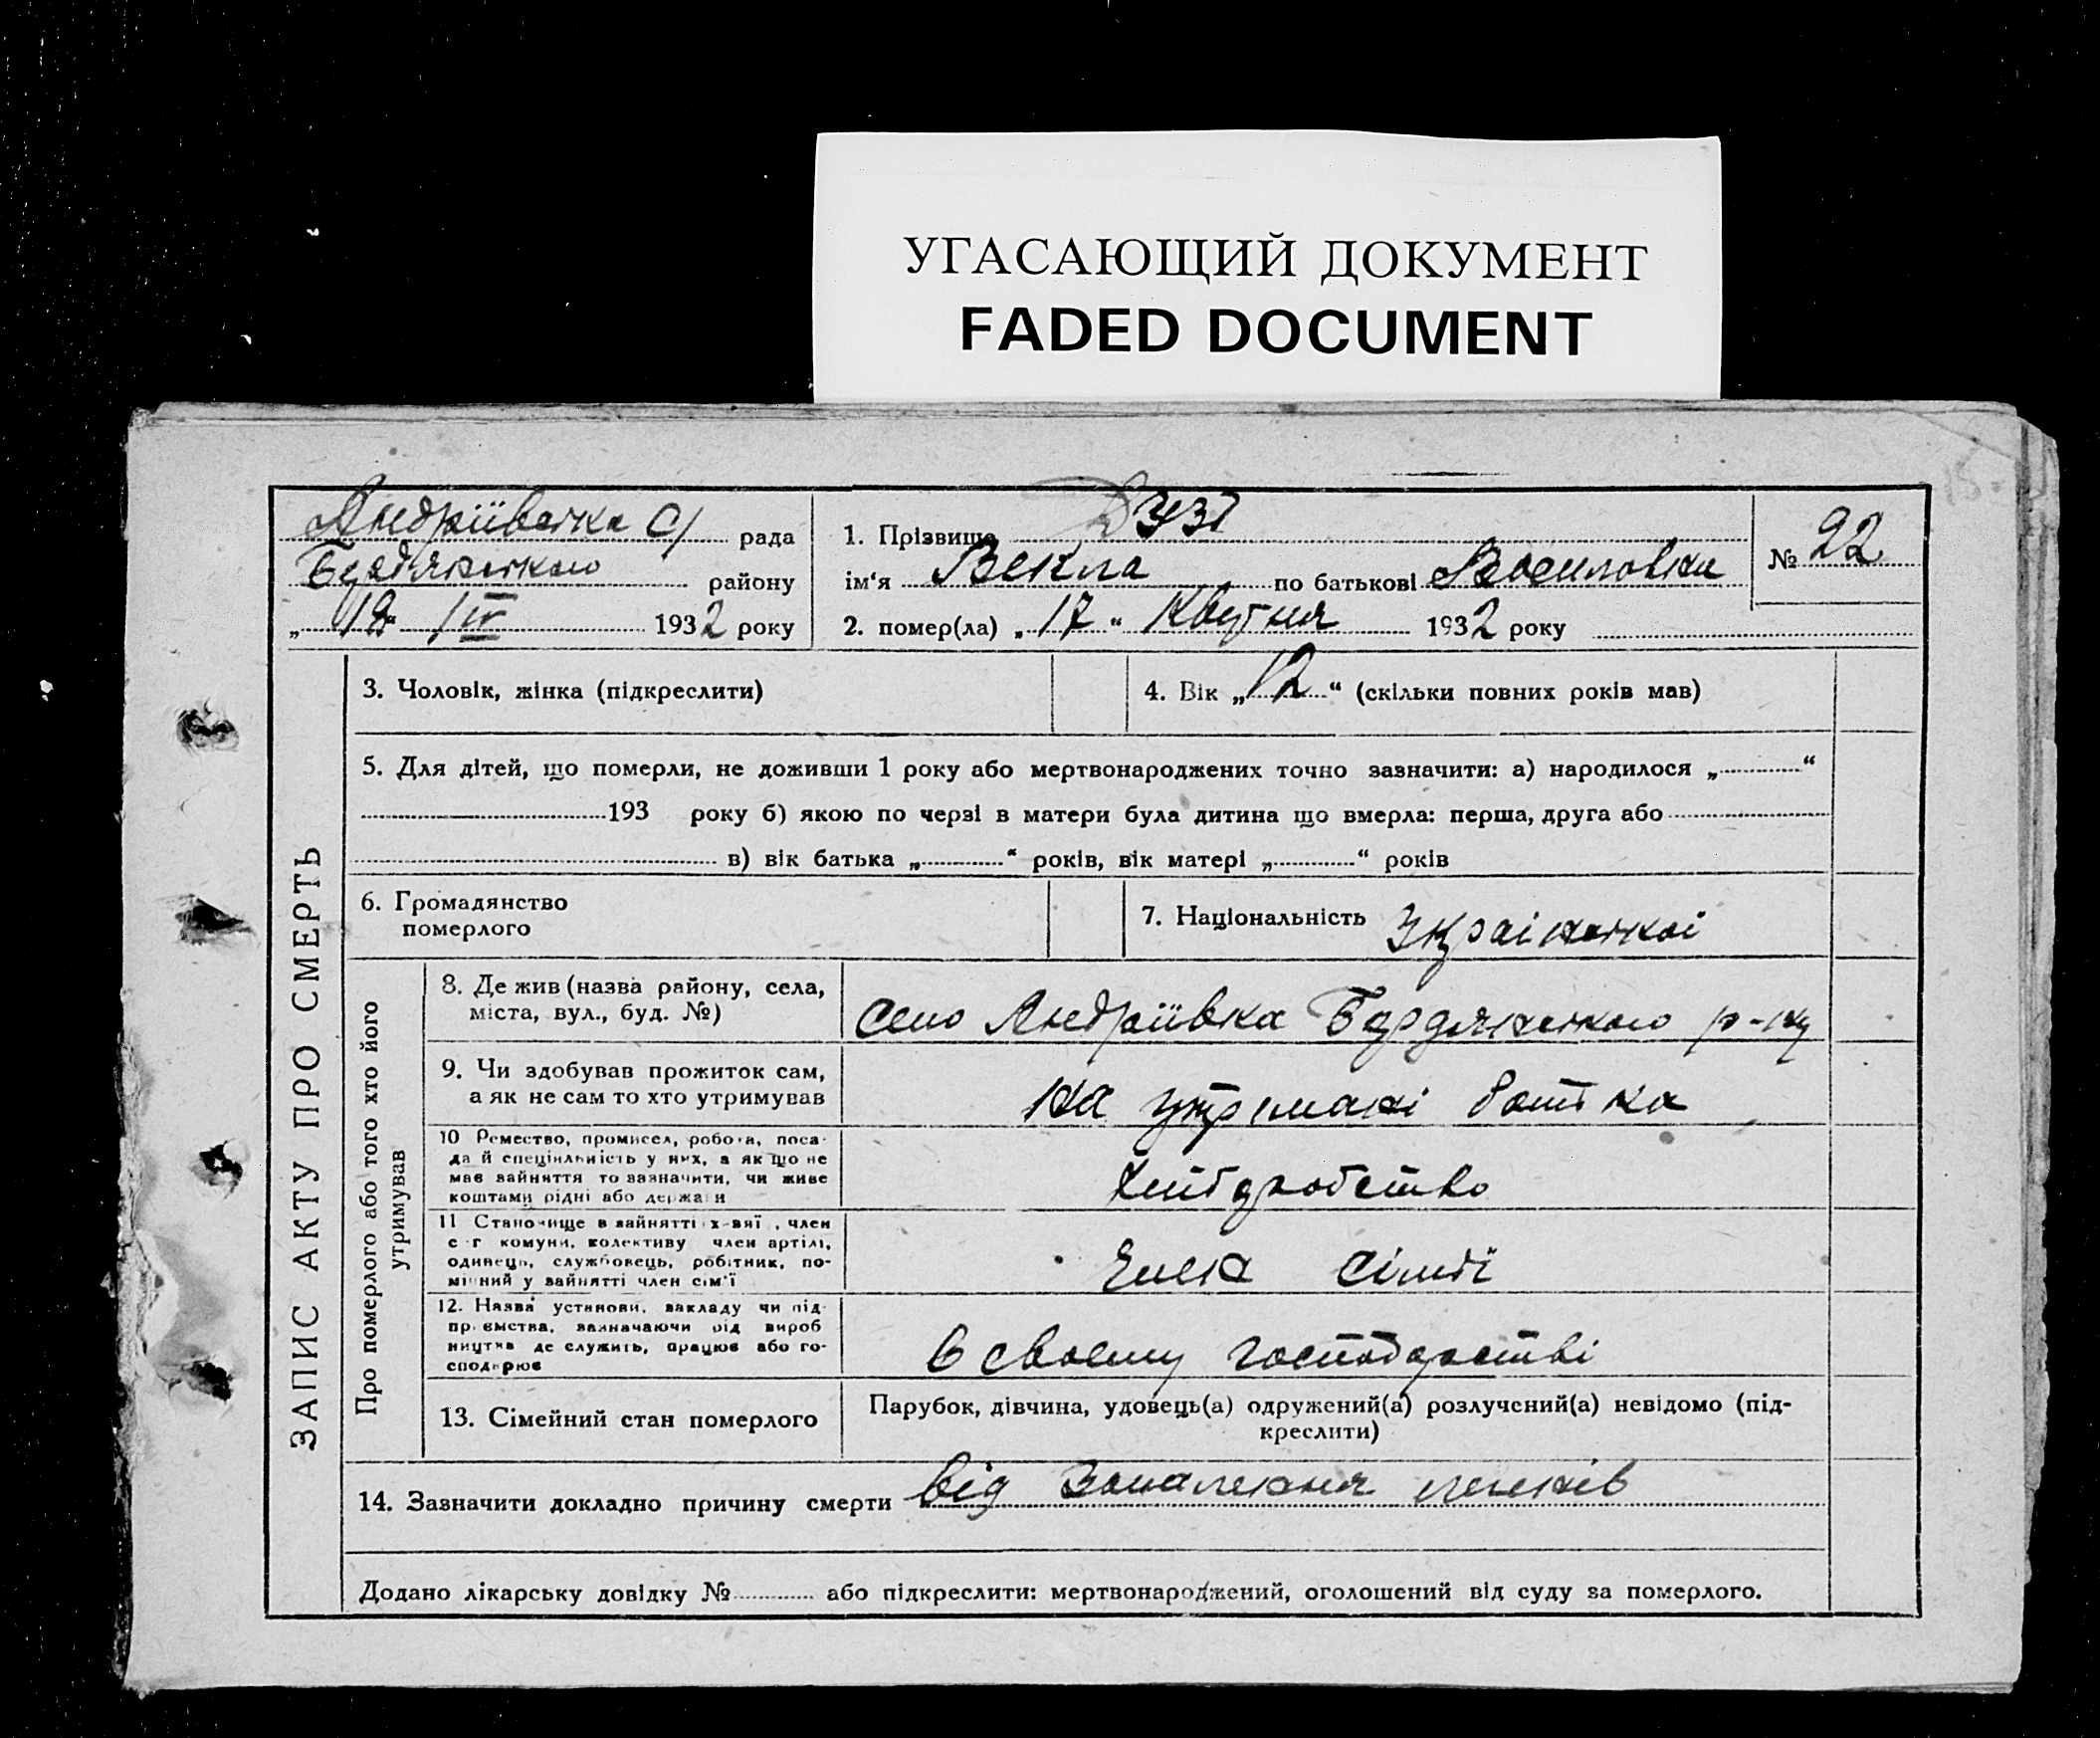 УГАСАЮЩИЙ ДОКУМЕНТ
FADED DOCUMENT
Андріївська С/ рада
Бердянського району
„ 18 / IV 1932 року
1. Прізвище
ім‘я Векла по батькові Василовна
№ 22
2. помер(ла) „ 17 “ Квітня 1932 року
ЗАПИС АКТУ ПРО СМЕРТЬ
3. Чоловік, жінка (підкреслити)
4. Вік „ 12 “ (скільки повних років мав)
5. Для дітей, що померли, не доживши 1 року або мертвонароджених точно зазначити: а) народилося „ “
193 року б) якою по черзі в матери була дитина що вмерла: перша, друга або
в) вік батька „ “ років, вік матері „ “ років
6. Громадянство
померлого
7. Національність Української
Про померлого або того хто його
утримував
8. Де жив (назва району, села,
міста, вул., буд. №)
село Андріївка Бердянського р-ну
9. Чи здобував прожиток сам,
а як не сам то хто утримував
на утримані батька
10 Ремество, промисел, робота, поса-
да й спеціяльність у них, а якщо не
має зайняття то зазначити, чи живе
коштами рідні або держави
хліборобство
11 Становище в зайнятті: х-вяї, член
с-г комуни, колективу член артілі,
одинець, службовець, робітник, по-
мічний у зайнятті член сім‘ї
Член сімї
12. Назва установи, закладу чи під-
приємства, зазначаючи рід вироб
ництва де служить, працює або го-
сподарює
в своєму господарстві
13. Сімейний стан померлого
Парубок, дівчина, удовець(а) одружений(а) розлучений(а) невідомо (під-
креслити)
14. Зазначити докладно причину смерти від запалення легенів
Додано лікарську довідку № або підкреслити: мертвонароджений, оголошений від суду за померлого.